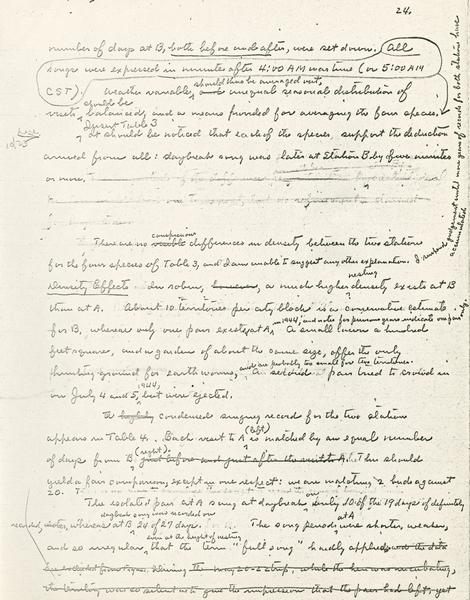 24.
number of days at B, both before and after, were set down. All
songs were expressed in minutes after 4:00 AM war time (or 5:00 AM
CST). Weather variables and unequal seasonal distribution of
should thus be averaged out,
visits balanced, and so means provided for averaging the four species,
should be
Insert Table 3
It should be noticed that each of the species, support the deduction
arrived from all: daybreak song was later at Station B by five minutes
or more.
There are no conspicuous differences in density between the two stations
visible
for the four species of Table 3, and I am unable to suggest any other explanation.
I suspend judgement until more years of records for both stations have
accumulated
Density Effects In robins, however, a much higher nesting density exists at B
than at A. About 10 territories per city block is a conservative estimate
for B, whereas only one pair exists at A, 1944, and notes for previous years indicate one pair only.
A small lawn a hundred
feet square, and a garden of about the same size, offer the only
hunting-ground for earthworms, and are probably too small for two territories.
A second pair tried to crowd in
on July 4 and 5, 1944, but were ejected.
The condensed singing record for the two station
appears in Table 4. Each visit to A (left) is matched by an equal number
of days from B (right) just before and just after the visit to A. This should
yield a fair comparison, except in one respect: we are matching 2 birds against
20.
The isolated pair at A sang at daybreak on only 10 of the 19 days of definitely
daybreak song was recorded on
recorded, notes, whereas at B 24 of 27 days. The song periods at A were shorter, weaker,
even at the height of nesting
and so irregular, that the term "full song" hardly applied and the data
the territory was so silent as to give the impression that the pair had left, yet